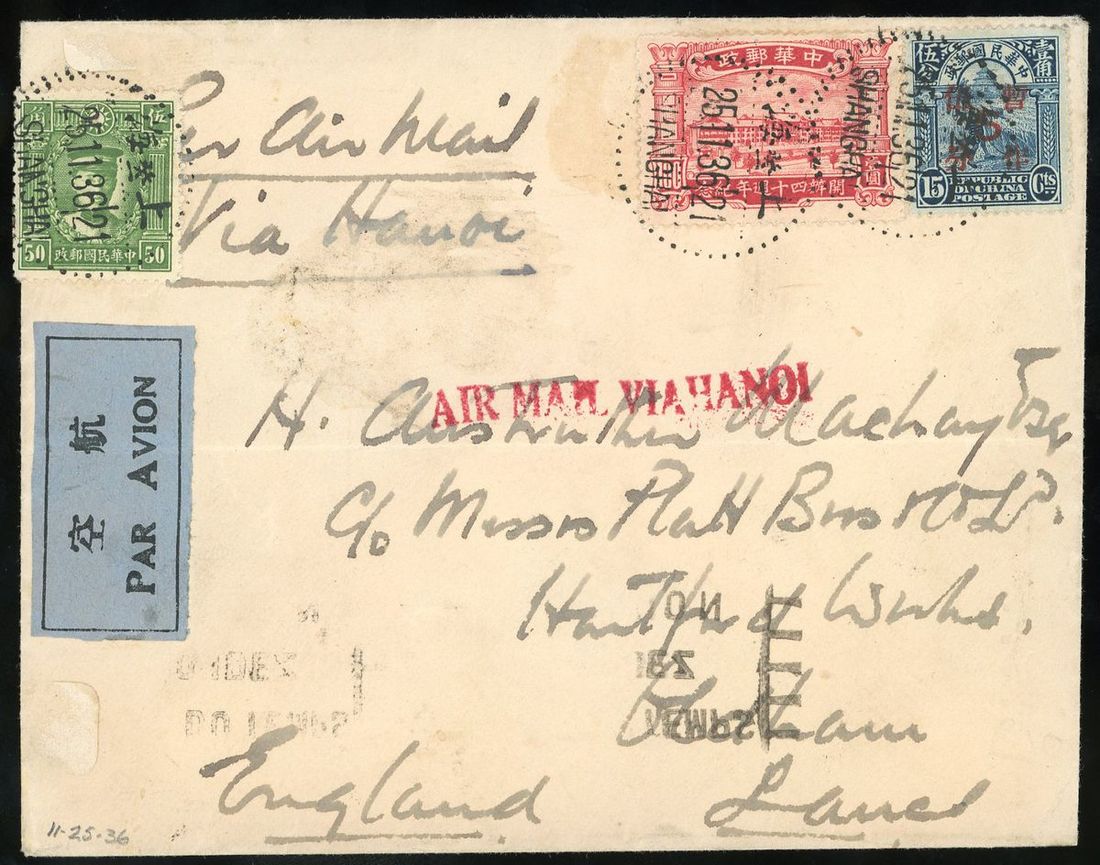 Per Air Mail
Via Hanoi
伍 分
50 中華民國郵政 50
25.11.36.21
上
SHANGHA
中華郵政
圓
開辦四十週年紀念
25.11.36.21
上
SHANGHA
伍 壹
分 角
中華民國郵政
暫
作
15 Cts
REPUBLIC
OF CHINA
POSTAGE
SHANGHA
AIR MAIL VIA HANOI
航空
PAR AVION
H. Mackay Esq
c/o Messrs Platt Bros & Co Ld.
Hartford Works.
Oldham
Lancs
England
11-25-36